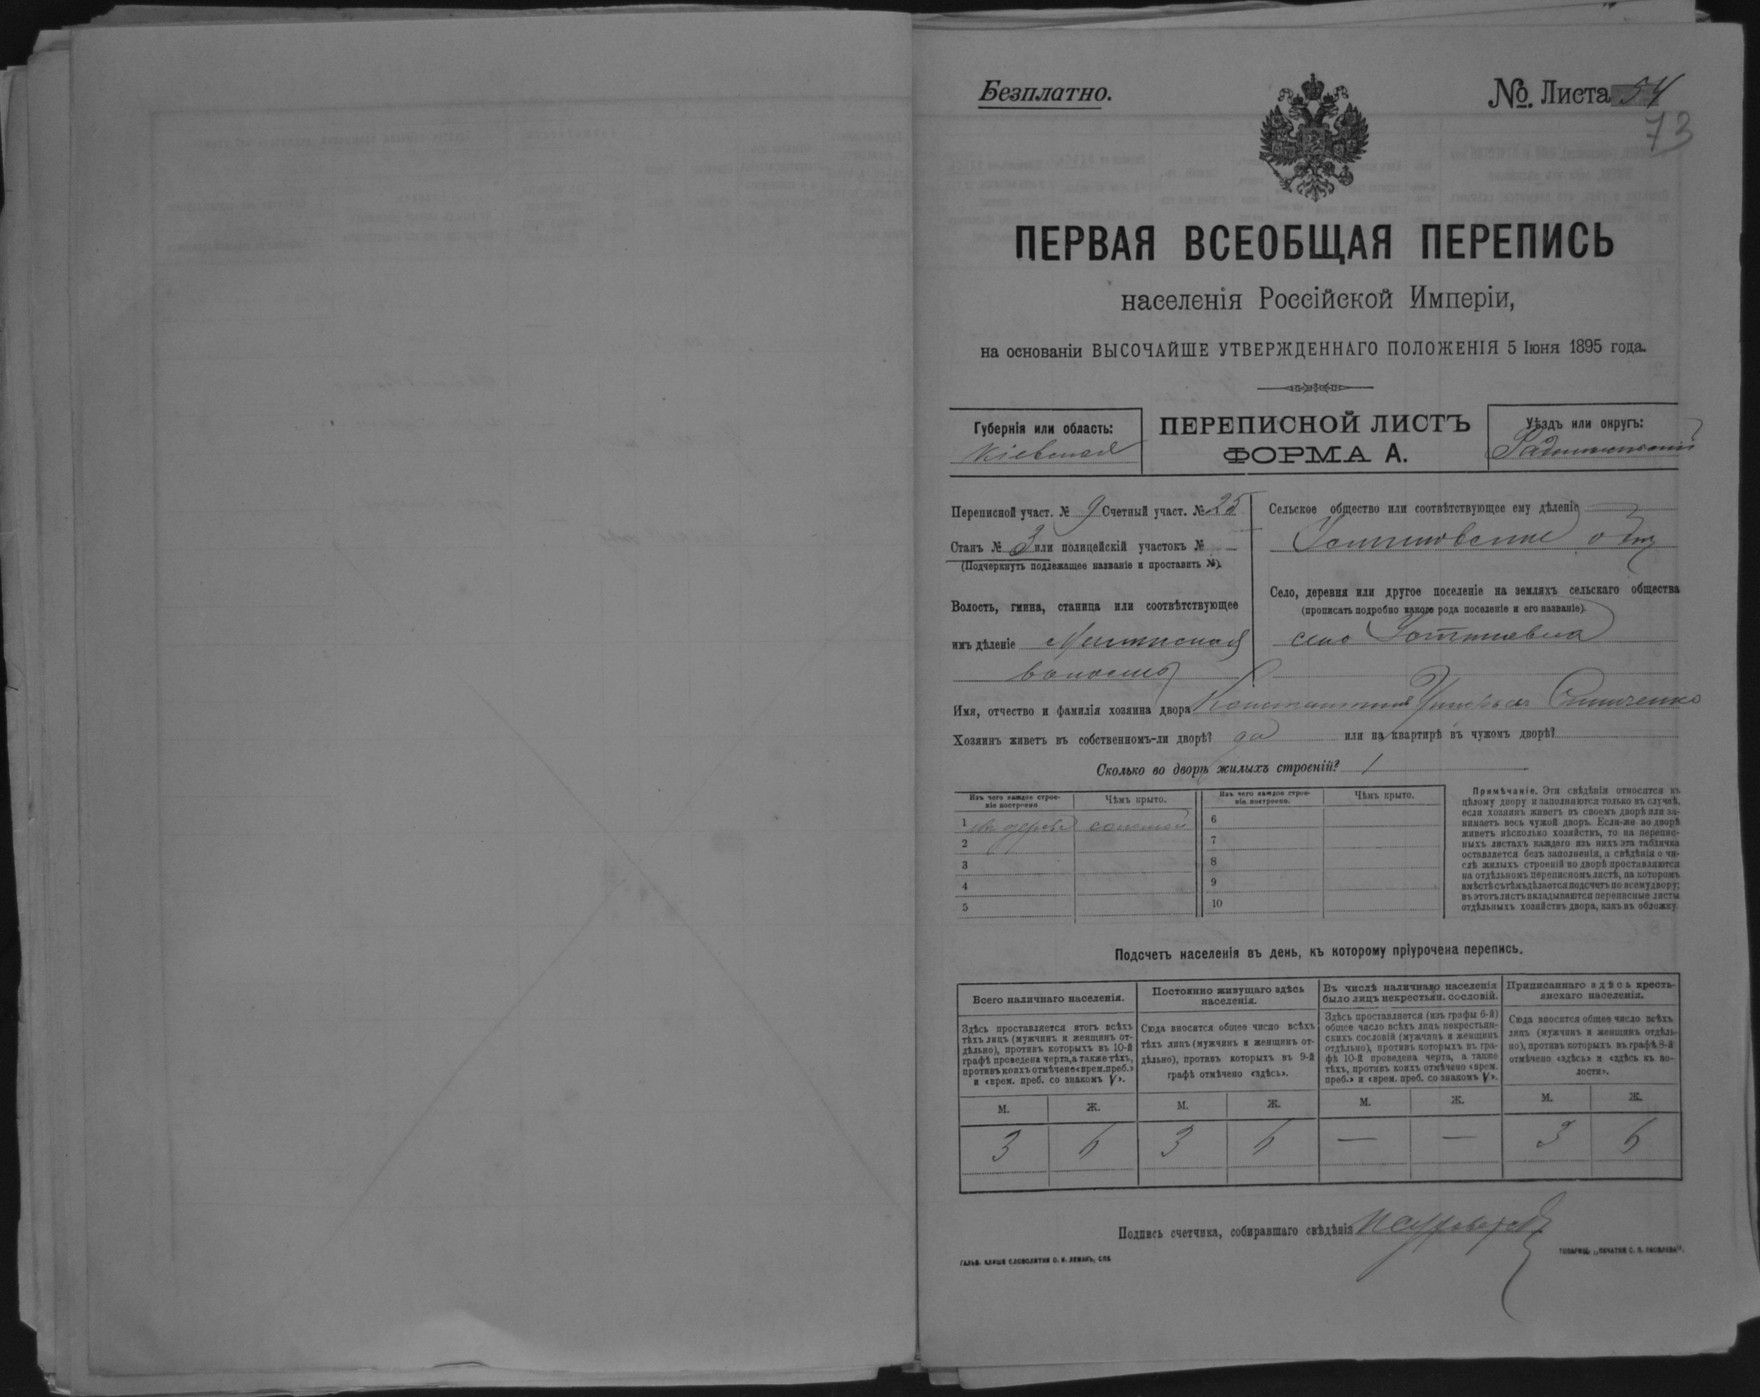 Безплатно.
№ Листа 54
73
ПЕРВАЯ ВСЕОБЩАЯ ПЕРЕПИСЬ
населенія Россійской Имперіи,
на основаніи ВЫСОЧАЙШЕ УТВЕРЖДЕННАГО ПОЛОЖЕНІЯ 5 Іюня 1895 года.
Губернія или область:
Кіевская
ПЕРЕПИСНОЙ ЛИСТЪ
ФОРМА А.
Уѣздъ или округъ:
Переписной участ. № 9 Счетный участ. № 25
Станъ № 3 или полицейскій участокъ № —
(Подчеркнуть подлежащее названіе и проставить №).
Волость, гмина, станица или соотвѣтствующее
имъ дѣленіе
волость
Сельское общество или соотвѣтствующее ему дѣленіе
Село, деревня или другое поселеніе на земляхъ сельскаго общества
(прописать подробно какого рода поселеніе и его названіе).
село
Имя, отчество и фамилія хозяина двора Константинъ
Хозяинъ живетъ въ собственномъ-ли дворѣ? да или на квартирѣ въ чужомъ дворѣ?
Сколько во дворѣ жилыхъ строеній? 1
Изъ чего каждое строе-
ніе построено
Чѣмъ крыто.
Изъ чего каждое строе-
ніе построено.
Чѣмъ крыто.
1 изъ дерева соломой
2
3
4
5
6
7
8
9
10
Примѣчаніе. Эти свѣдѣнія относятся къ
цѣлому двору и заполняются только въ случаѣ,
если хозяинъ живетъ въ своемъ дворѣ или за-
нимаетъ весь чужой дворъ. Если-же во дворѣ
живетъ нѣсколько хозяйствъ, то на перепис-
ныхъ листахъ каждаго изъ нихъ эта табличка
оставляется безъ заполненія, а свѣдѣнія о чи-
слѣ жилыхъ строеній во дворѣ проставляются
на отдѣльномъ переписномъ листѣ, на которомъ
вмѣстѣ съ тѣмъ дѣлается подсчетъ по всему двору;
въ этотъ листъ вкладываются переписные листы
отдѣльныхъ хозяйствъ двора, какъ въ обложку.
Подсчетъ населенія въ день, къ которому пріурочена перепись.
Всего наличнаго населенія.
Здѣсь проставляется итогъ всѣхъ
тѣхъ лицъ (мужчинъ и женщинъ от-
дѣльно), противъ которыхъ въ 10-й
графѣ проведена черта, а также тѣхъ,
противъ коихъ отмѣчено «врем. преб.»
и «врем. преб. со знакомъ V».
Постоянно живущаго здѣсь
населенія.
Сюда вносится общее число всѣхъ
тѣхъ лицъ (мужчинъ и женщинъ от-
дѣльно), противъ которыхъ въ 9-й
графѣ отмѣчено «здѣсь».
Въ числѣ наличнаго населенія
было лицъ некрестьян. сословій.
Здѣсь проставляется (изъ графы 6-й)
общее число всѣхъ лицъ некрестьян-
скихъ сословій (мужчинъ и женщинъ
отдѣльно), противъ которыхъ въ гра-
фѣ 10-й проведена черта, а также
тѣхъ, противъ коихъ отмѣчено «врем.
преб.» и «врем. преб. со знакомъ V».
Приписаннаго здѣсь кресть-
янскаго населенія.
Сюда вносится общее число всѣхъ
лицъ (мужчинъ и женщинъ отдѣль-
но), противъ которыхъ въ графѣ 8-й
отмѣчено «здѣсь» и «здѣсь въ во-
лости».
М. Ж. М. Ж. М. Ж. М. Ж.
3 6 3 6 — — 3 6
Подпись счетчика, собиравшаго свѣдѣнія
ГАЛЬВ. КЛИШЕ СЛОВОЛИТНИ О. И. ЛЕМАНЪ, СПБ.
ТОВАРИЩ. „ПЕЧАТНЯ С. П. ЯКОВЛЕВА".